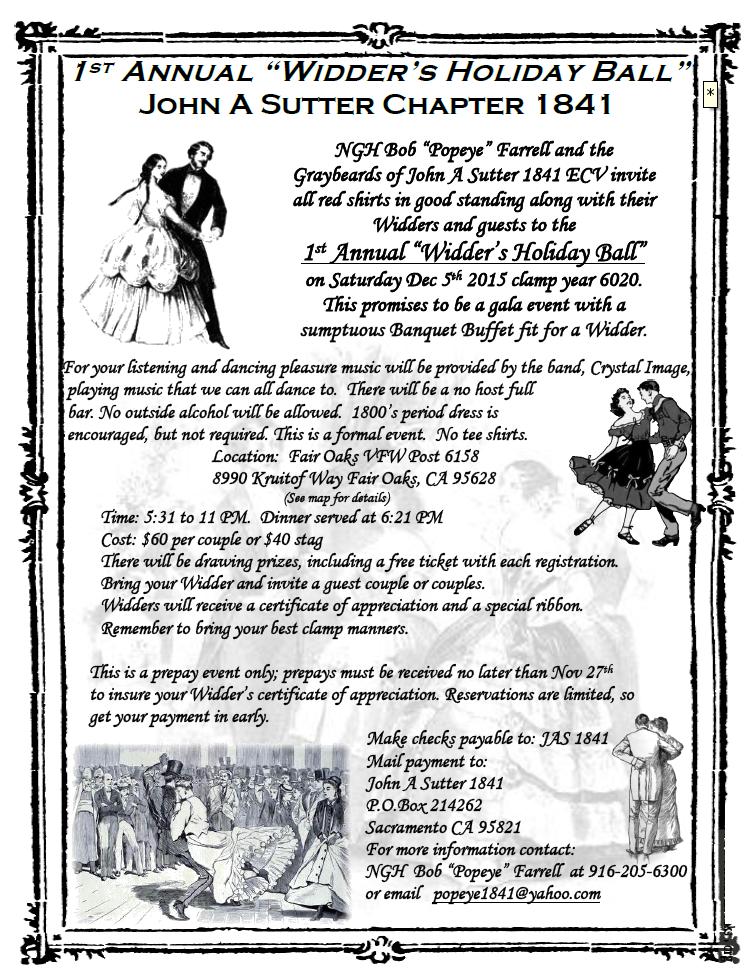 1ST ANNUAL “WIDDER’S HOLIDAY BALL”
JOHN A SUTTER CHAPTER 1841
*
NGH Bob “Popeye” Farrell and the
Graybeards of John A Sutter 1841 ECV invite
all red shirts in good standing along with their
Widders and guests to the
1st Annual “Widder’s Holiday Ball”
on Saturday Dec 5th 2015 clamp year 6020.
This promises to be a gala event with a
sumptuous Banquet Buffet fit for a Widder.
For your listening and dancing pleasure music will be provided by the band, Crystal Image,
playing music that we can all dance to. There will be a no host full
bar. No outside alcohol will be allowed. 1800’s period dress is
encouraged, but not required. This is a formal event. No tee shirts.
Location: Fair Oaks VFW Post 6158
8990 Kruitof Way Fair Oaks, CA 95628
(See map for details)
Time: 5:31 to 11 PM. Dinner served at 6:21 PM
Cost: $60 per couple or $40 stag
There will be drawing prizes, including a free ticket with each registration.
Bring your Widder and invite a guest couple or couples.
Widders will receive a certificate of appreciation and a special ribbon.
Remember to bring your best clamp manners.
This is a prepay event only; prepays must be received no later than Nov 27th
to insure your Widder’s certificate of appreciation. Reservations are limited, so
get your payment in early.
Make checks payable to: JAS 1841
Mail payment to:
John A Sutter 1841
P.O.Box 214262
Sacramento CA 95821
For more information contact:
NGH Bob “Popeye” Farrell at 916-205-6300
or email popeye1841@yahoo.com